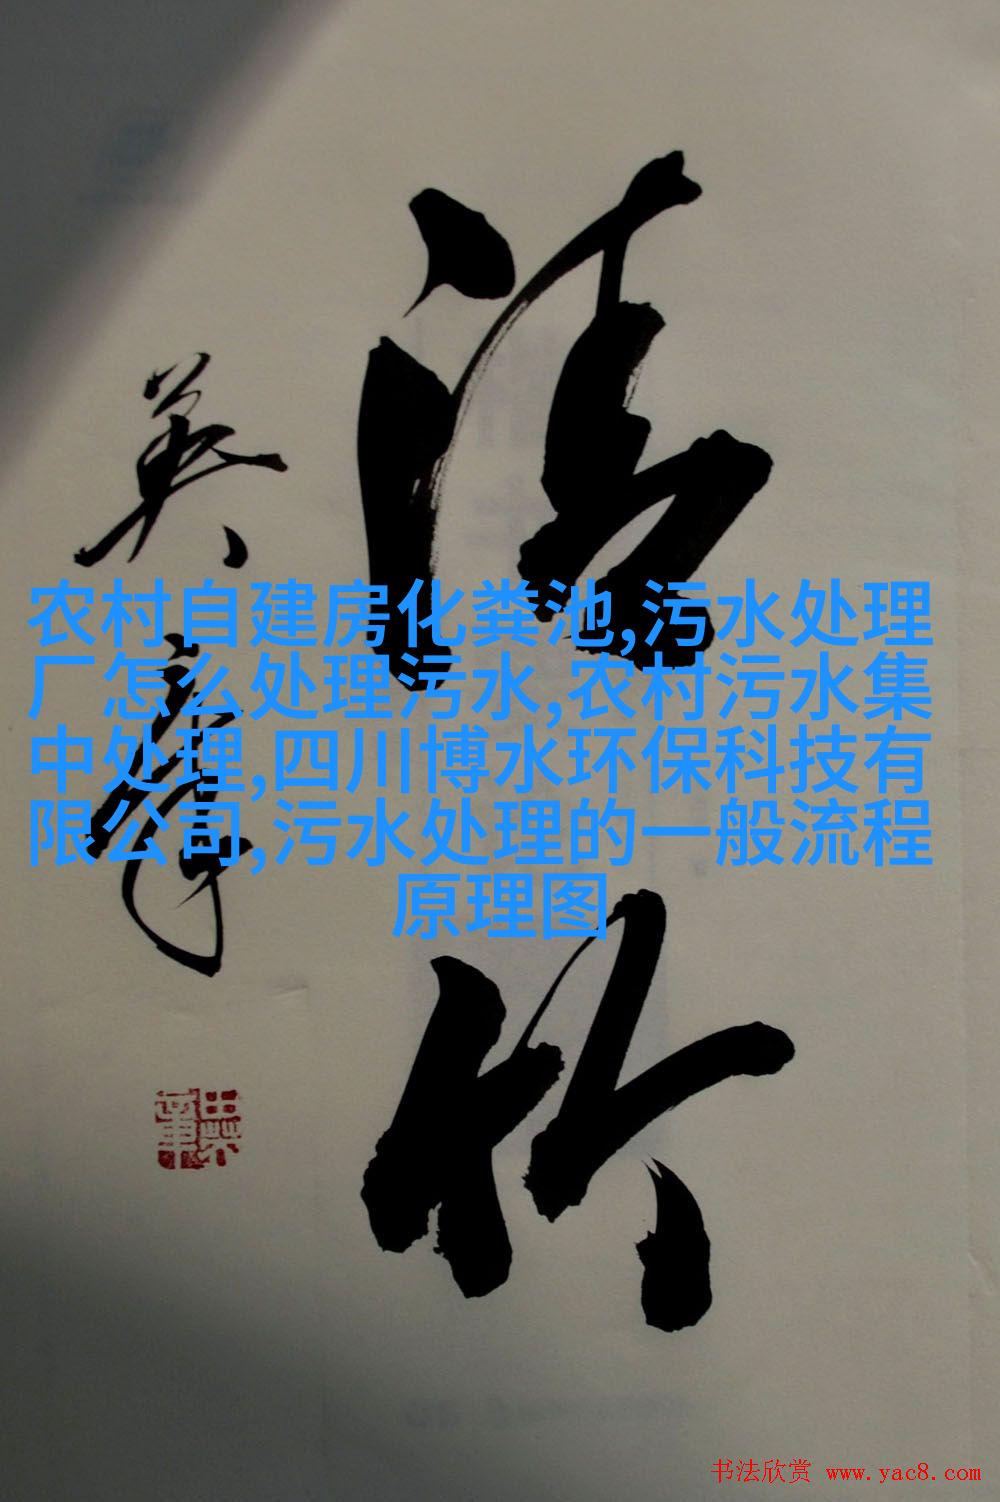 清竹
英章
农村自建房化粪池,污水处理
厂怎么处理污水,农村污水集
中处理,四川博水环保科技有
限公司,污水处理的一般流程
原理图
书法欣赏 www.yac8.com